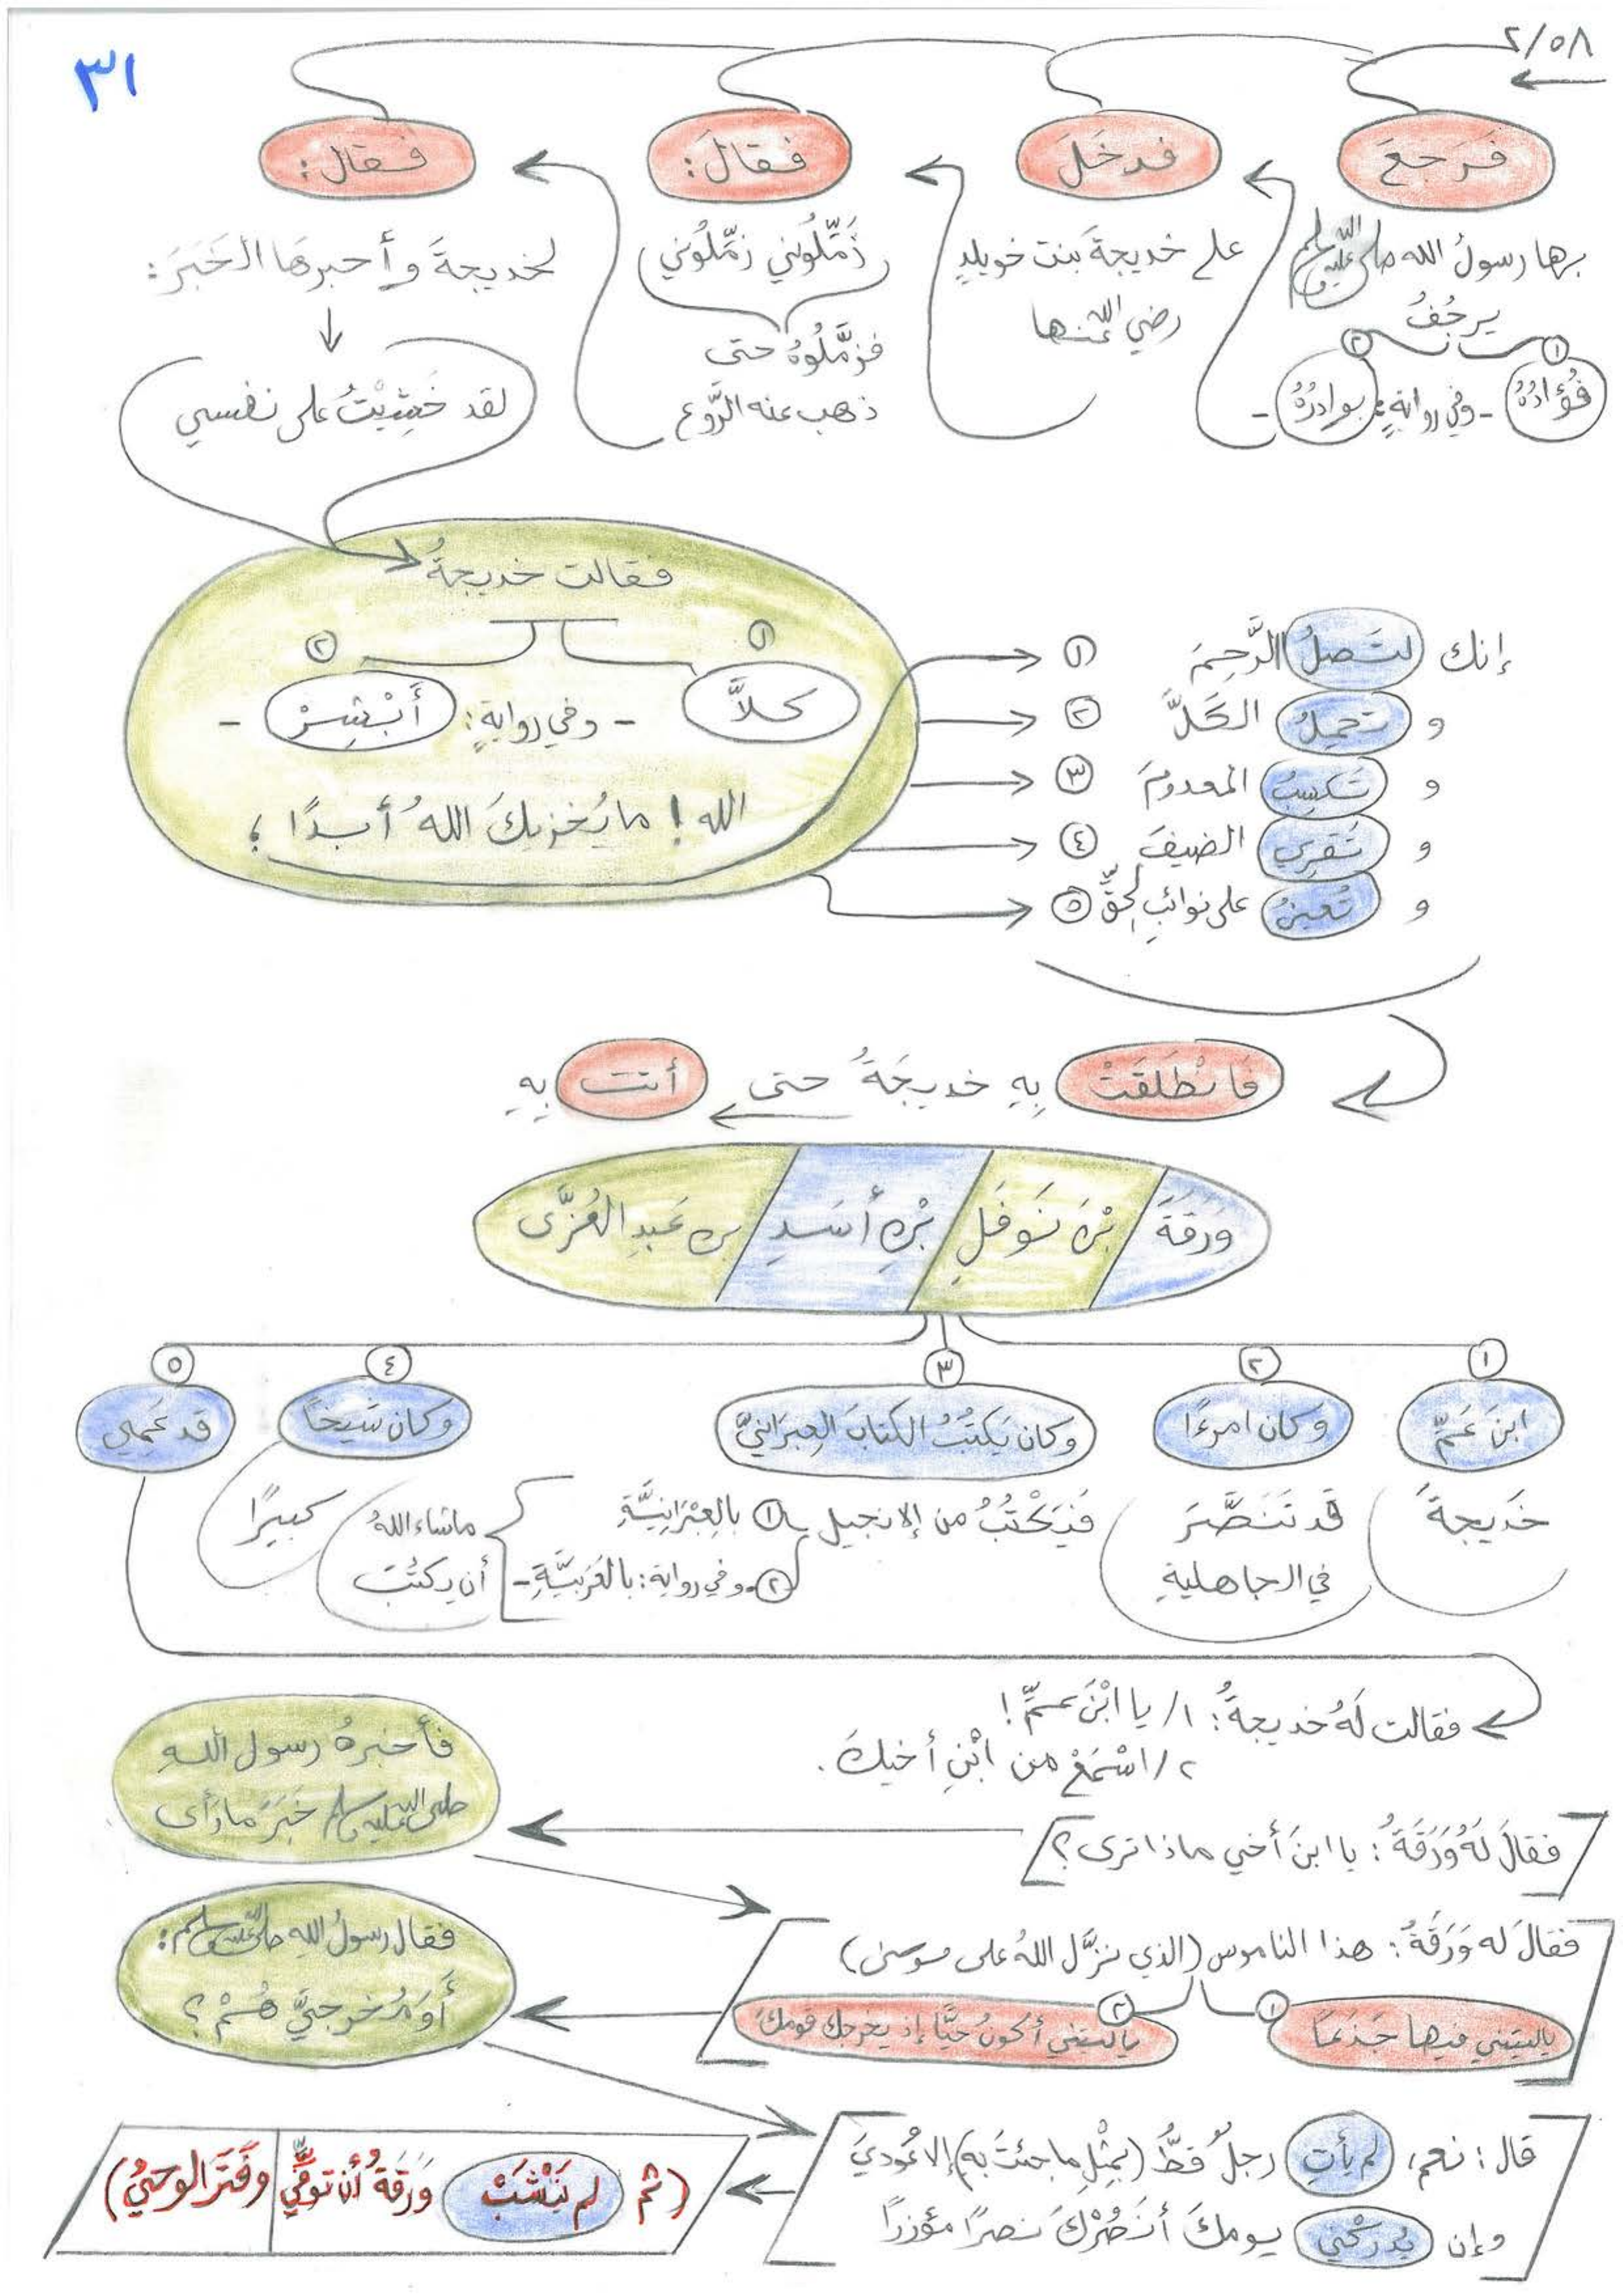 ٢/٥٨
٣١
فَرَجعَ
فدخَلَ
فقالَ:
فقال:
بها رسولُ الله صلى الله عليه وسلم
يرجُفُ
١
٢
فُؤَادُهُ
- وفي روايةٍ:
بوادرُهُ
-
على خديجةَ بنت خويلدٍ
رضي الله عنها
زَمِّلُوني زمِّلُوني
فزمَّلُوهُ حتى
ذهب عنه الرَّوع
لخديجةَ وأخبرهَا الخَبَرَ:
لقد خَشِيْتُ على نفسي
فقالت خديجةُ
١
٢
كلاَّ
- وفي روايةٍ:
أَبْشِرْ
-
الله! ما يُخزيكَ اللهُ أبدًا؛
إنك لتَصلُ الرَّحِمَ ١
و تحمِلُ الكَلَّ ٢
و تَكسِبُ المعدومَ ٣
و تَقرِي الضيفَ ٤
و تُعينُ على نوائبِ الحقِّ ٥
فانْطَلَقَتْ بِهِ خديجَةُ حتى أتت بِهِ
وَرَقةَ / بْنَ نَوفَلِ / بْنِ أَسَدِ / بن عَبدِ العُزَّى
١
٢
٣
٤
٥
ابنَ عَمِّ
وكان امرءًا
وكان يَكتُبُ الكتابَ العِبرَانيَّ
وكان شيخاً
قد عَمِي
خَديجةَ
قد تَنَصَّرَ
في الجاهليةِ
فيَكْتُبُ من الإنجيل
١ بالعِبْرَانِيَّةِ
٢- وفي رواية: بالعَرَبيَّةِ -
ما شاء اللهُ
أن يكتُبَ
كبيرًا
فقالت لَهُ خديجةُ: ١/ يا ابْنَ عمِّ!
٢/ اسْمَعْ من ابْنِ أخيكَ.
فقالَ لَهُ وَرَقَةُ: يا ابنَ أخي ماذا ترى؟
فأخبرهُ رسول اللهِ
صلى الله عليه وسلم خَبَرَ ما رَأى
فقالَ له وَرَقَةُ: هذا الناموس (الذي نزَّل اللهُ على موسى)
١
٢
ياليتني فيها جَذَعاً
ياليتني أكونُ حيًّا إذ يخرجك قومكَ
فقال رسولُ اللهِ صلى الله عليه وسلم:
أَوَ مُخرجيَّ هُمْ؟
قال: نعم، لم يأتِ رجلٌ قطُّ (بمِثْلِ ما جئتَ به) إلا عُودِيَ
وإن يُدركْني يومكَ أنصُرْكَ نصرًا مؤزرًا
(ثم لم يَنْشَبْ ورَقةُ أن تُوفِّيَ وفَتَرَ الوحيُ)